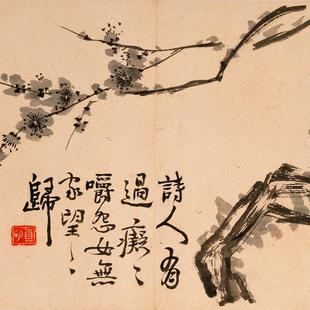 詩人有
過癡〻
嚼怨女無
家望〻
歸